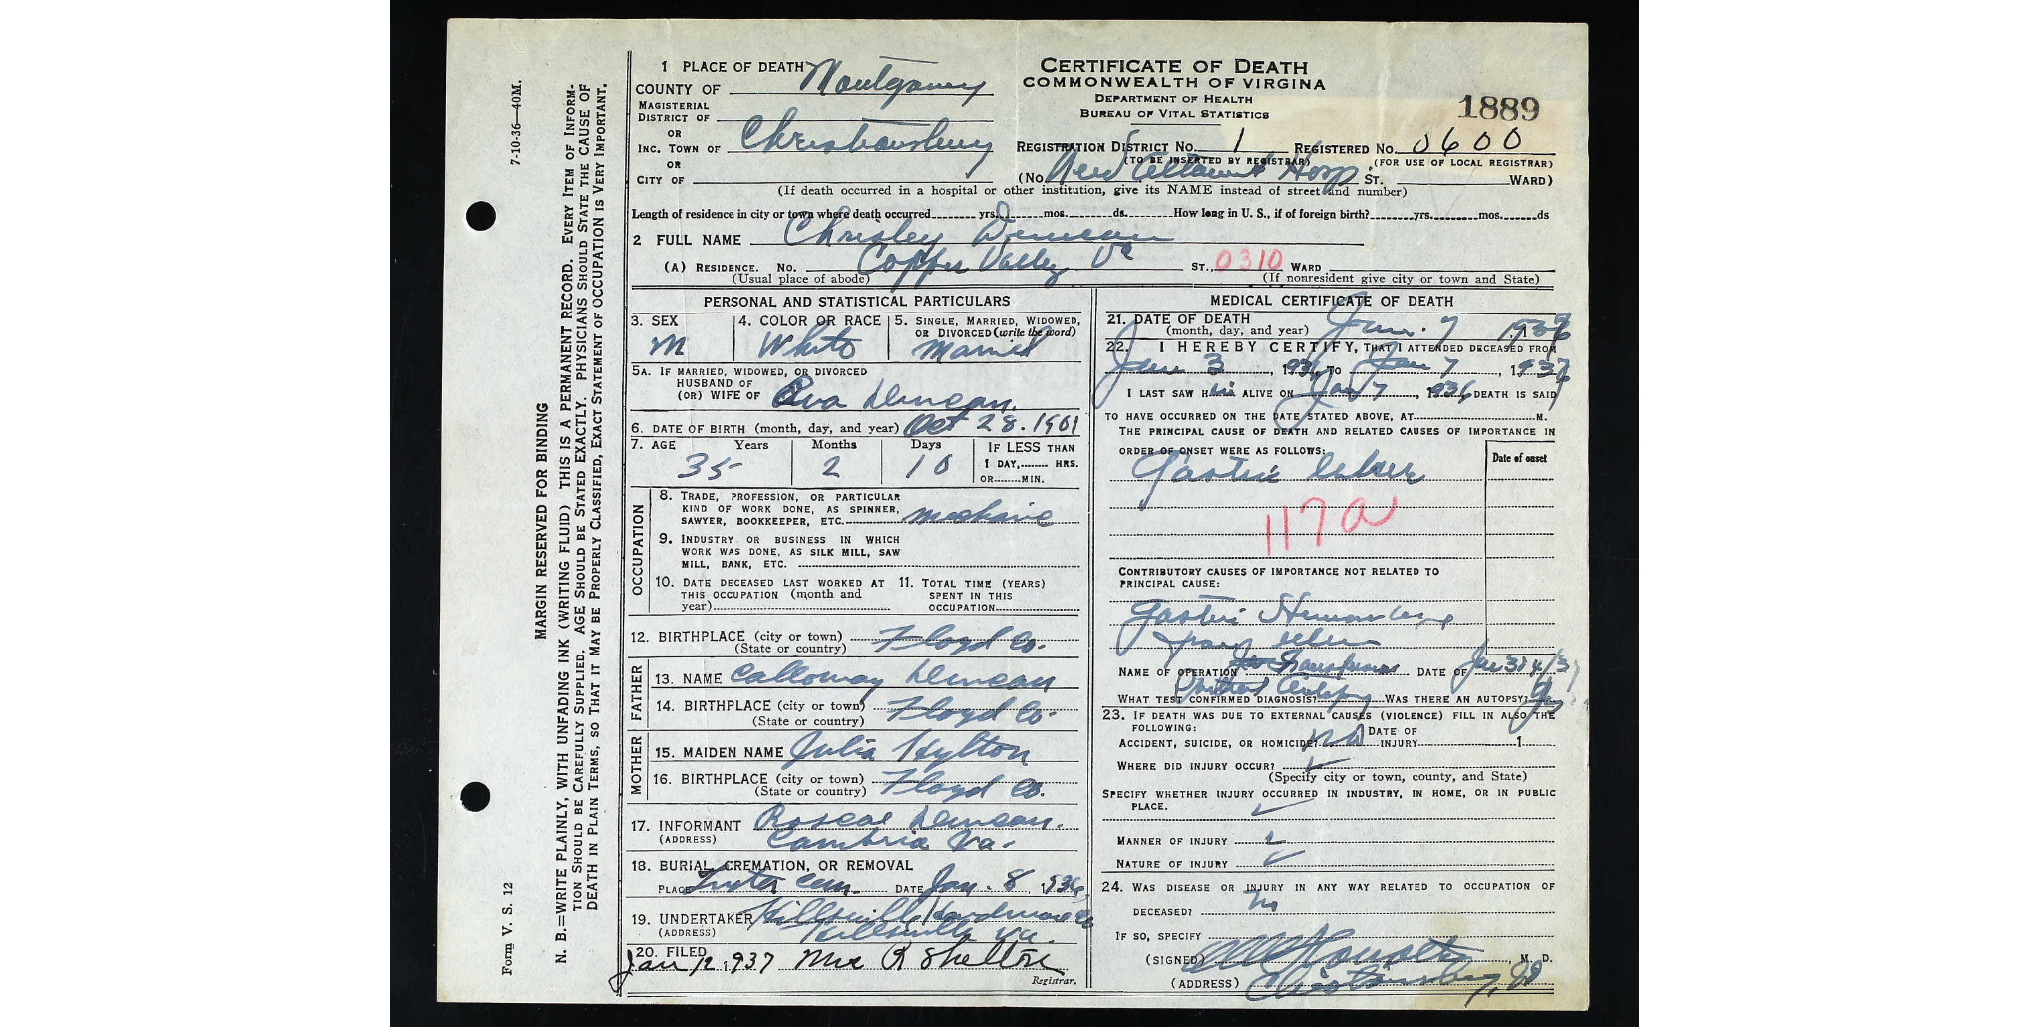 7-10-36—40M.
MARGIN RESERVED FOR BINDING
N. B.—WRITE PLAINLY, WITH UNFADING INK (WRITING FLUID) THIS IS A PERMANENT RECORD. EVERY ITEM OF INFORM-
TION SHOULD BE CAREFULLY SUPPLIED. AGE SHOULD BE STATED EXACTLY. PHYSICIANS SHOULD STATE THE CAUSE OF
DEATH IN PLAIN TERMS, SO THAT IT MAY BE PROPERLY CLASSIFIED, EXACT STATEMENT OF OCCUPATION IS VERY IMPORTANT.
Form V. S. 12
CERTIFICATE OF DEATH
COMMONWEALTH OF VIRGINIA
DEPARTMENT OF HEALTH
BUREAU OF VITAL STATISTICS
1889
1 PLACE OF DEATH
COUNTY OF Montgomery
MAGISTERIAL
DISTRICT OF
OR
INC. TOWN OF Christiansburg
OR
CITY OF
REGISTRATION DISTRICT No. 1 REGISTERED No. 0600
(TO BE INSERTED BY REGISTRAR) (FOR USE OF LOCAL REGISTRAR)
(No. New Altamont Hosp. ST. WARD)
(If death occurred in a hospital or other institution, give its NAME instead of street and number)
Length of residence in city or town where death occurred yrs. mos. ds. How long in U. S., if of foreign birth? yrs. mos. ds
2 FULL NAME Chrisley Duncan
(A) RESIDENCE. No. Copper Valley Va ST., 0310 WARD
(Usual place of abode) (If nonresident give city or town and State)
PERSONAL AND STATISTICAL PARTICULARS
3. SEX M
4. COLOR OR RACE White
5. SINGLE, MARRIED, WIDOWED, OR DIVORCED (write the word) Married
5A. IF MARRIED, WIDOWED, OR DIVORCED
HUSBAND OF
(OR) WIFE OF Eva Duncan
6. DATE OF BIRTH (month, day, and year) Oct 28. 1901
7. AGE Years Months Days IF LESS THAN
35 2 10 1 DAY, HRS.
OR MIN.
OCCUPATION
8. TRADE, PROFESSION, OR PARTICULAR
KIND OF WORK DONE, AS SPINNER,
SAWYER, BOOKKEEPER, ETC. mechanic
9. INDUSTRY OR BUSINESS IN WHICH
WORK WAS DONE, AS SILK MILL, SAW
MILL, BANK, ETC.
10. DATE DECEASED LAST WORKED AT
THIS OCCUPATION (month and
year)
11. TOTAL TIME (YEARS)
SPENT IN THIS
OCCUPATION
12. BIRTHPLACE (city or town) Floyd Co.
(State or country)
FATHER
13. NAME Calloway Duncan
14. BIRTHPLACE (city or town) Floyd Co.
(State or country)
MOTHER
15. MAIDEN NAME Julia Hylton
16. BIRTHPLACE (city or town) Floyd Co.
(State or country)
17. INFORMANT Roscoe Duncan.
(ADDRESS) Cambria Va.
18. BURIAL, CREMATION, OR REMOVAL
PLACE Cem. DATE Jan. 8, 1936
19. UNDERTAKER Hillsville Hardware Co
(ADDRESS) Hillsville Va.
20. FILED Jan 12, 1937 Mrs R Shelton
Registrar.
MEDICAL CERTIFICATE OF DEATH
21. DATE OF DEATH
(month, day, and year) Jan. 7 1936
22. I HEREBY CERTIFY, THAT I ATTENDED DECEASED FROM
Jan 3, 1936, TO Jan 7, 1937
I LAST SAW HIM ALIVE ON Jan 7, 1936 DEATH IS SAID
TO HAVE OCCURRED ON THE DATE STATED ABOVE, AT M.
THE PRINCIPAL CAUSE OF DEATH AND RELATED CAUSES OF IMPORTANCE IN
ORDER OF ONSET WERE AS FOLLOWS:
Date of onset
Gastric ulcer
117a
CONTRIBUTORY CAUSES OF IMPORTANCE NOT RELATED TO
PRINCIPAL CAUSE:
Gastric Hemorrhage
from ulcer
NAME OF OPERATION Transfusions DATE OF Jan 3
WHAT TEST CONFIRMED DIAGNOSIS? WAS THERE AN AUTOPSY? Yes
23. IF DEATH WAS DUE TO EXTERNAL CAUSES (VIOLENCE) FILL IN ALSO THE
FOLLOWING:
ACCIDENT, SUICIDE, OR HOMICIDE? no DATE OF INJURY 1
WHERE DID INJURY OCCUR?
(Specify city or town, county, and State)
SPECIFY WHETHER INJURY OCCURRED IN INDUSTRY, IN HOME, OR IN PUBLIC
PLACE.
MANNER OF INJURY
NATURE OF INJURY
24. WAS DISEASE OR INJURY IN ANY WAY RELATED TO OCCUPATION OF
DECEASED? No
IF SO, SPECIFY
(SIGNED) M. D.
(ADDRESS) Christiansburg, Va